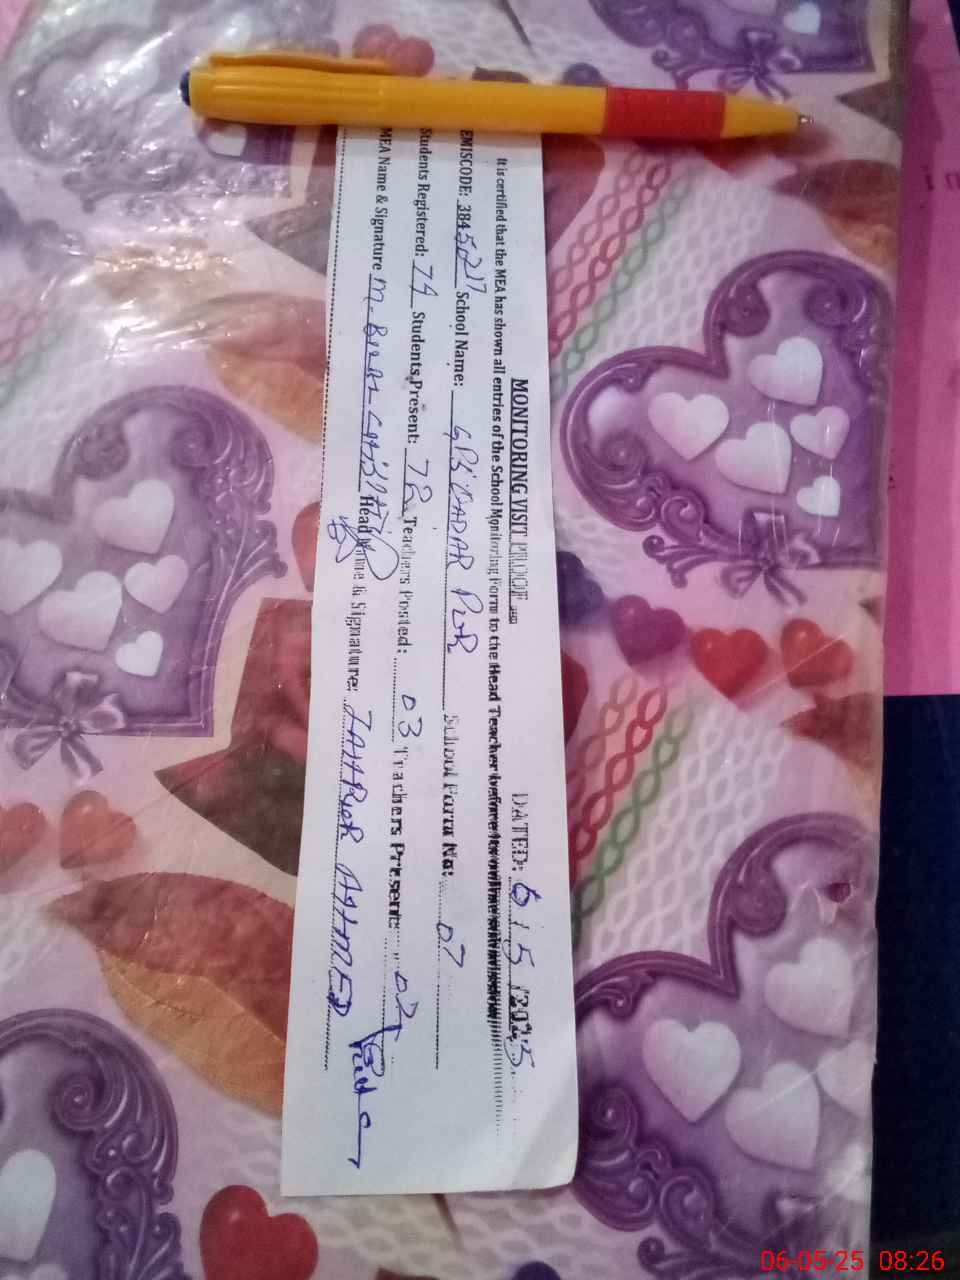 MONITORING VISIT PROOF DATED: 6 / 5 / 2025
It is certified that the MEA has shown all entries of the School Monitoring Form to the Head Teacher before its online submission.
EMISCODE: 3845217 School Name: GPS DADAR PUR School Form No: 07
Students Registered: 74 Students Present: 72 Teachers Posted: 03 Teachers Present: 02
MEA Name & Signature M. Head Name & Signature: AHMED
06-05-25 08:26